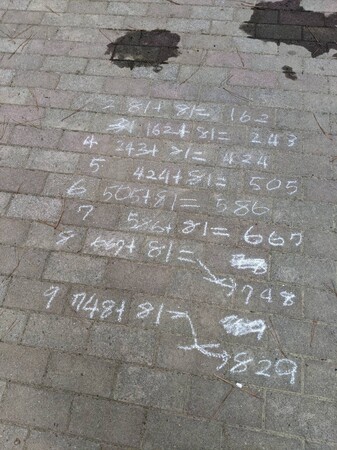 2 81+ 81= 162
3 162+ 81= 243
4 243+ 81= 424
5 424+81= 505
6 505+81= 586
7 586+ 81= 667
8 667+ 81=
748
9 748+ 81=
829